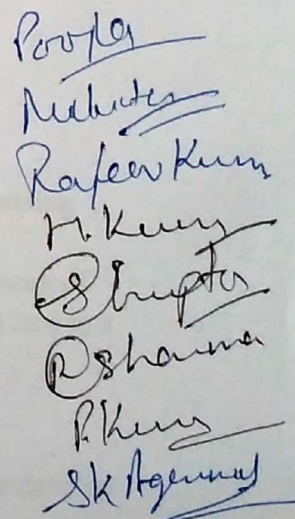 Pooja
Mahuter
Rajeev Kumar
M. Kumar
S Gupta
R Sharma
P. Kumar
SK Agarwal